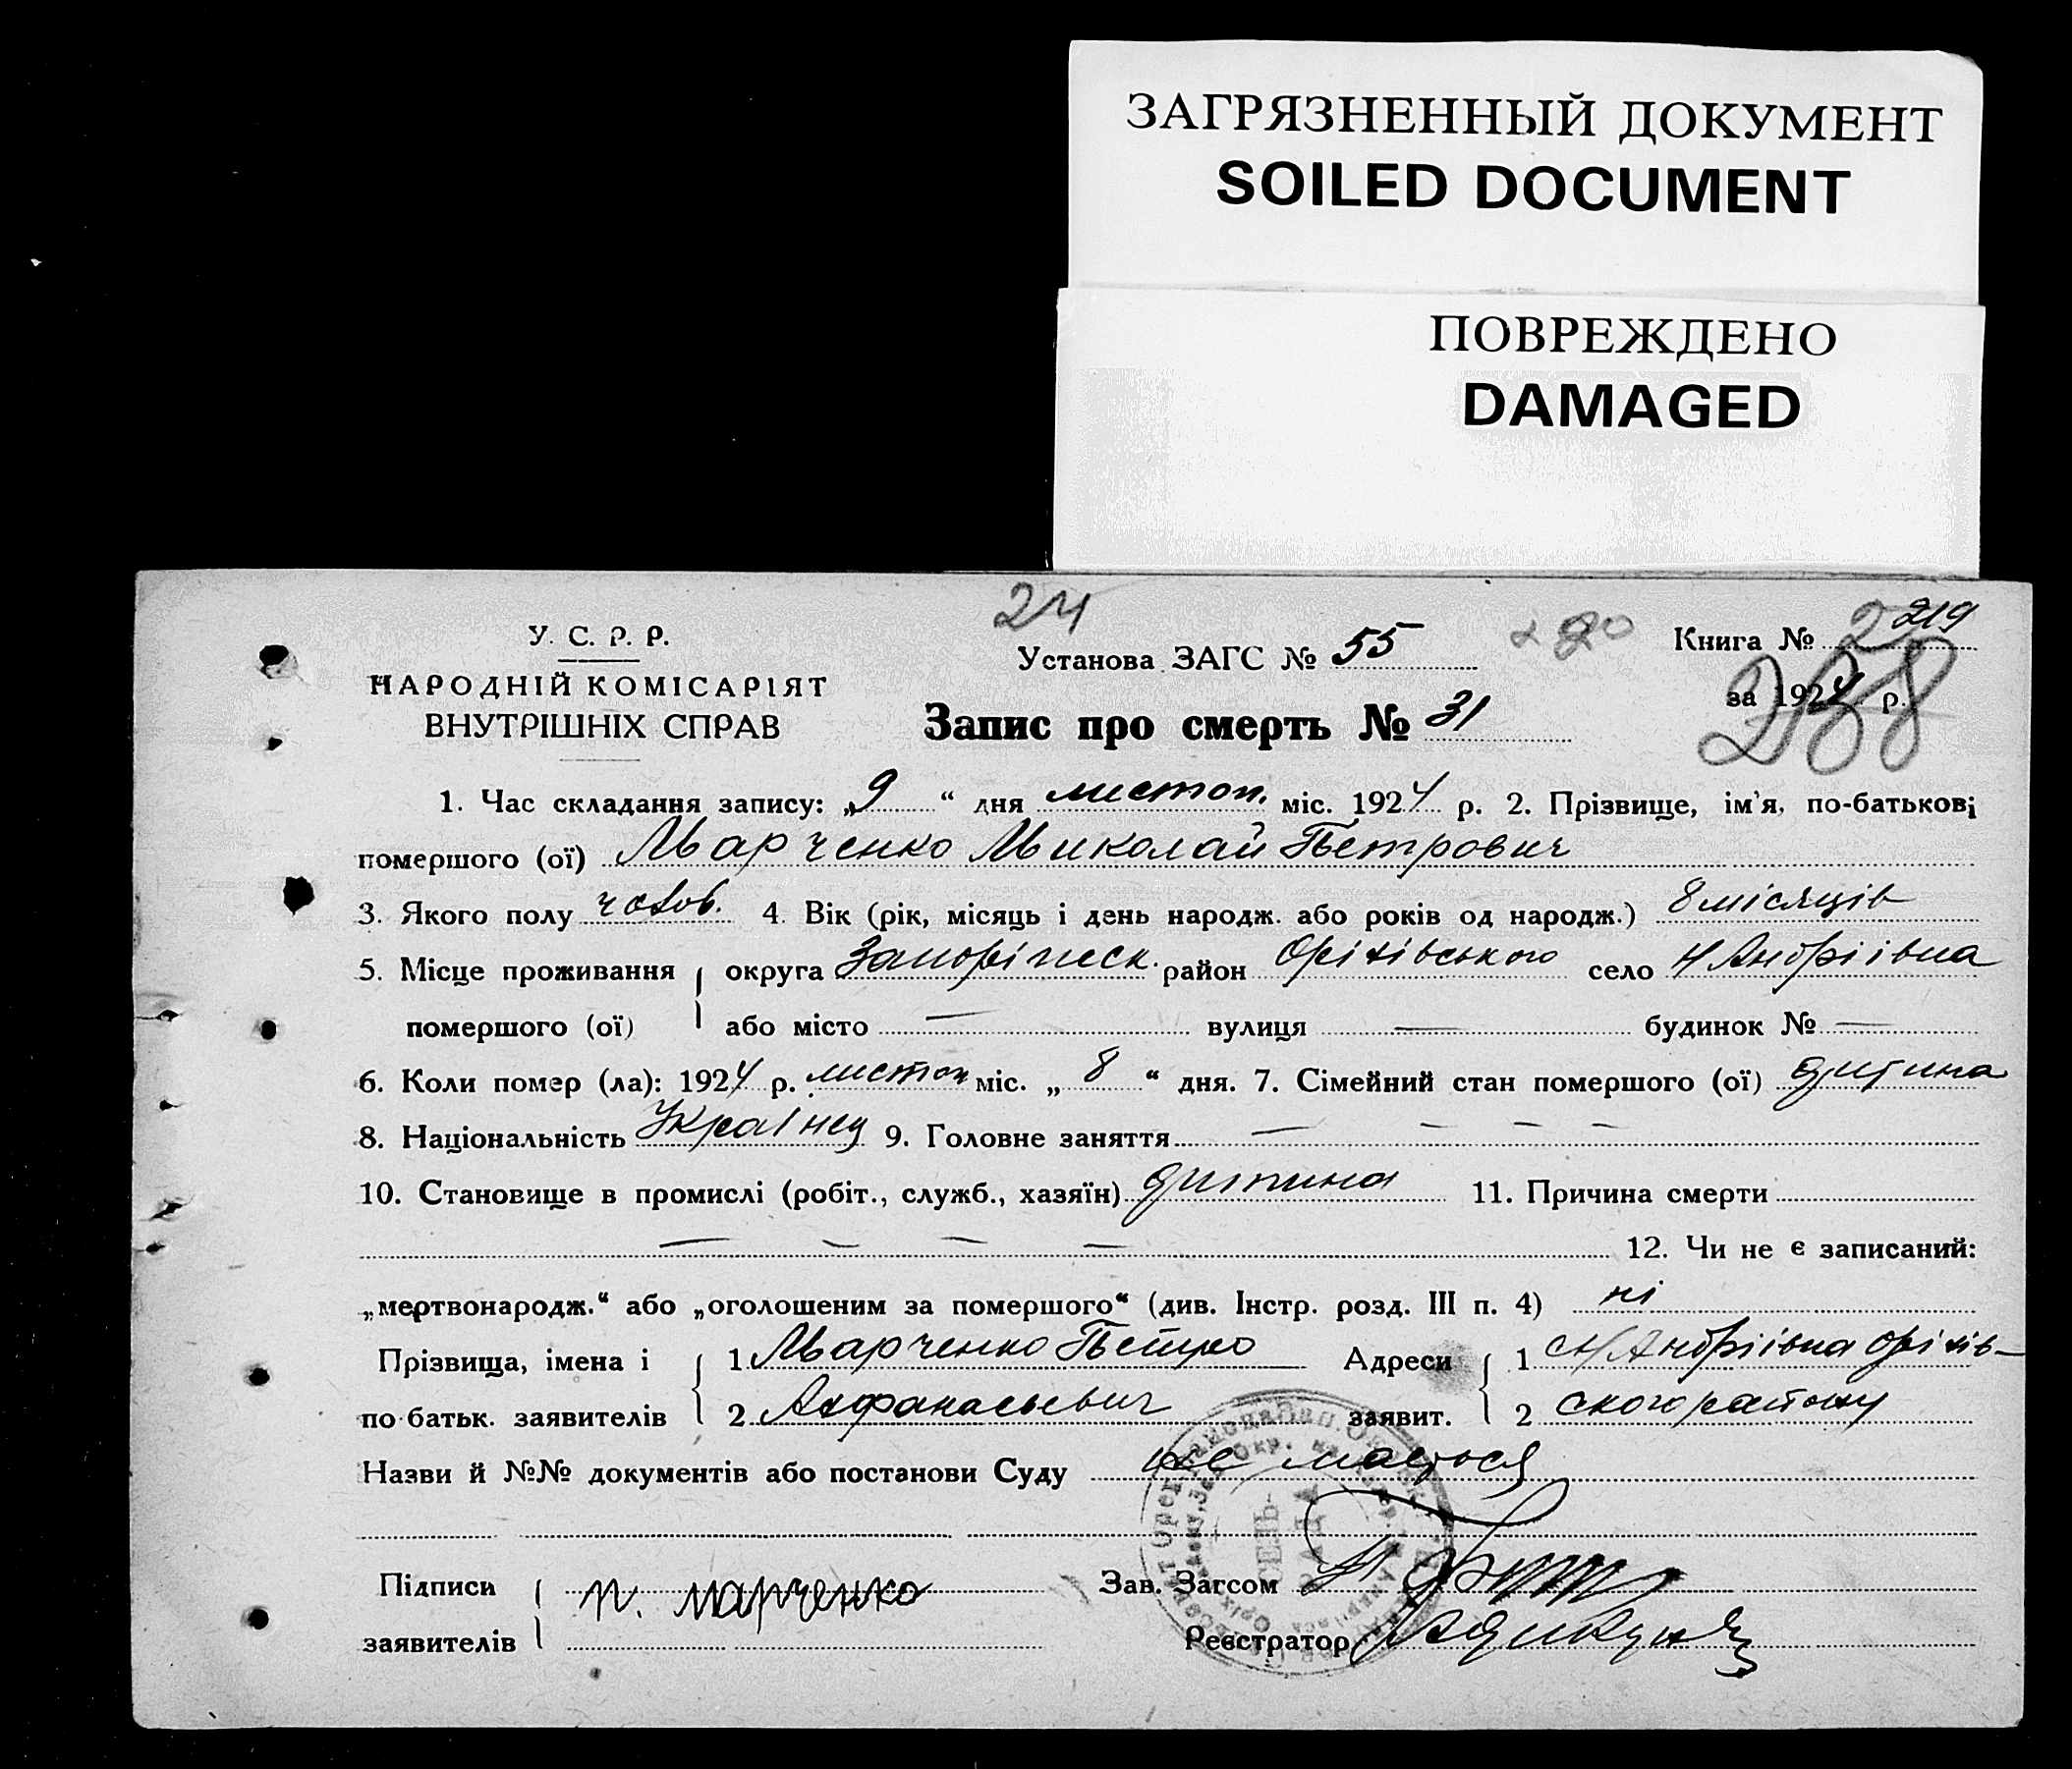 ЗАГРЯЗНЕННЫЙ ДОКУМЕНТ
SOILED DOCUMENT
ПОВРЕЖДЕНО
DAMAGED
24
219
У. С. Р. Р.
НАРОДНІЙ КОМІСАРІЯТ
ВНУТРІШНІХ СПРАВ
Установа ЗАГС № 55
Книга №
за 1924 р.
288
Запис про смерть № 31
1. Час складання запису: „9“ дня листоп. міс. 1924 р. 2. Прізвище, ім'я, по-батькові
помершого (ої) Марченко Миколай Петрович
3. Якого полу чолов. 4. Вік (рік, місяць і день народж. або років од народж.) 8 місяців
5. Місце проживання округа Запоріжск. район Оріхівського село Н Андріівна
помершого (ої) або місто — вулиця — будинок № —
6. Коли помер (ла): 1924 р. листоп міс. „8“ дня. 7. Сімейний стан помершого (ої) дитина
8. Національність Украінец 9. Головне заняття — — — —
10. Становище в промислі (робіт., служб., хазяїн) дитина 11. Причина смерти
— — — — 12. Чи не є записаний:
„мертвонародж.“ або „оголошеним за помершого“ (див. Інстр. розд. III п. 4) ні
Прізвища, імена і 1 Марченко Петро Адреси 1 с Н Андріівна Оріхів-
по батьк. заявителів 2 Анфанасьевич заявит. 2 ского району
Назви й №№ документів або постанови Суду не маеться
Підписи п. марченко Зав. Загсом
заявителів Реєстратор